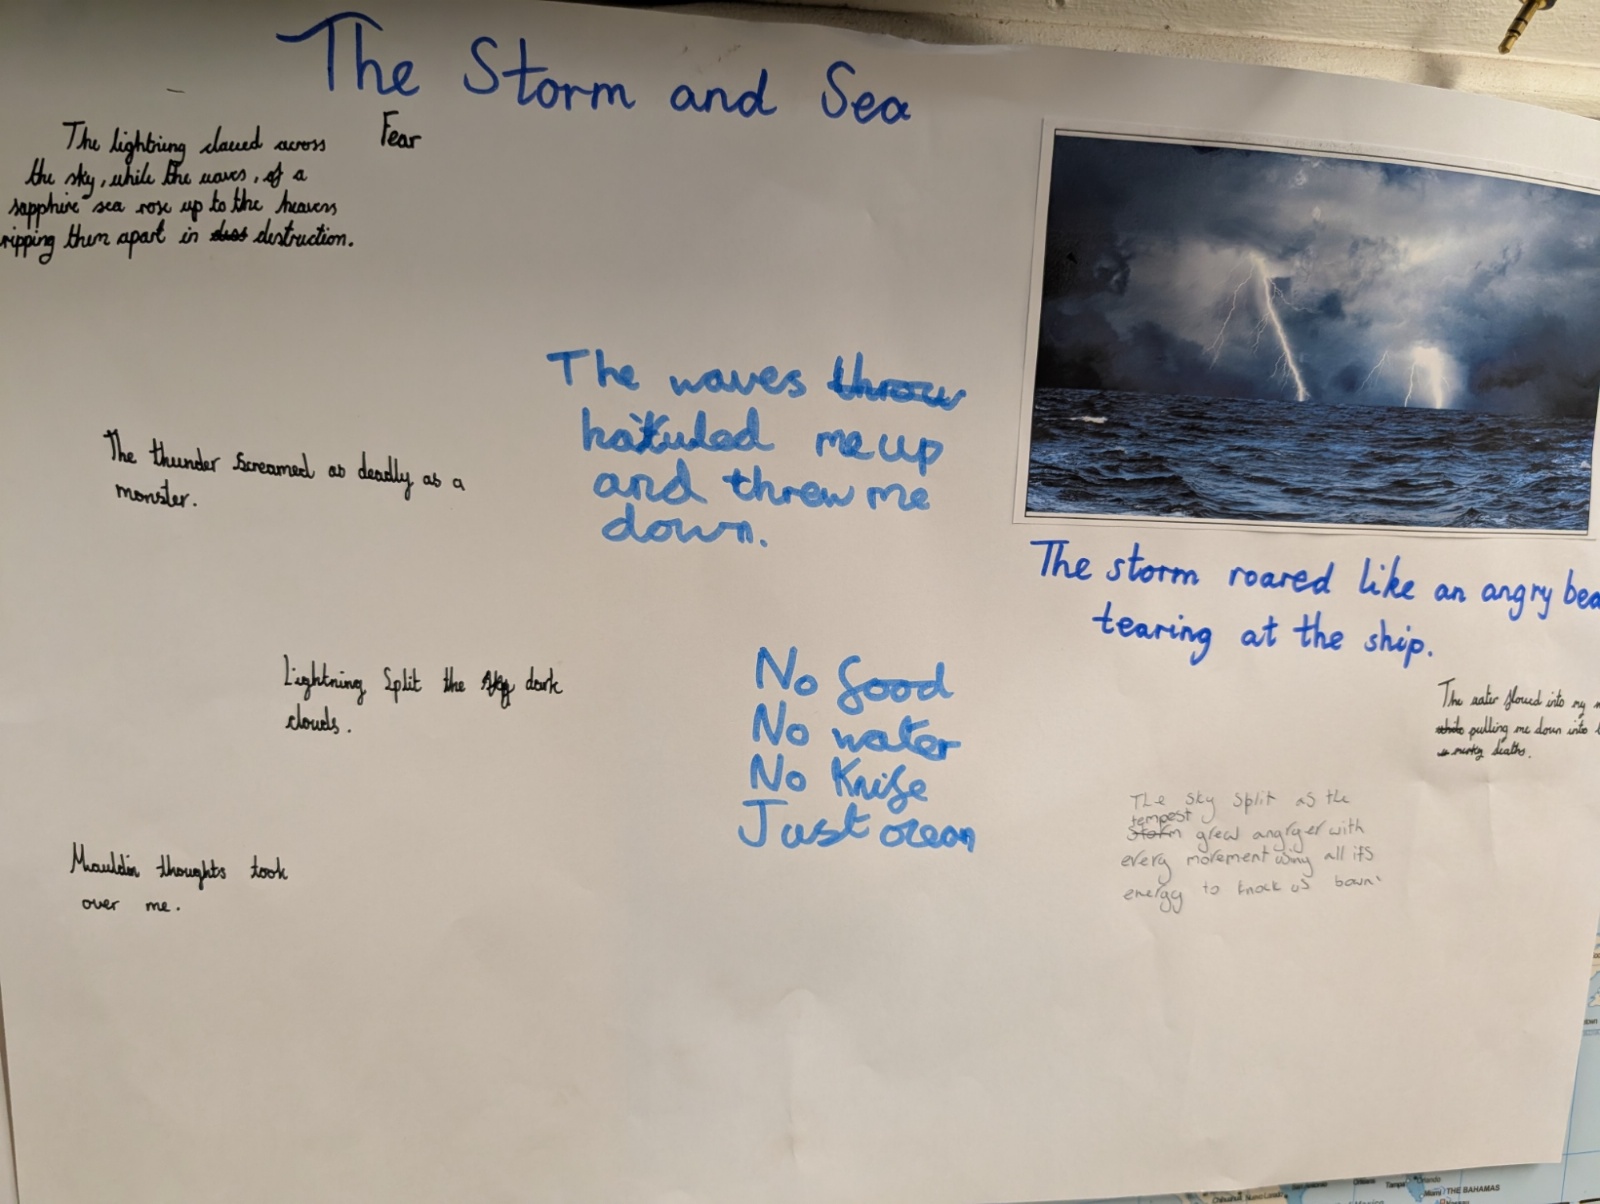 The Storm and Sea
Fear
The lightning clawed across
the sky, while the waves, of a
sapphire sea rose up to the heavens
ripping them apart in destruction.
The waves throw
hauled me up
and threw me
down.
The thunder screamed as deadly as a
monster.
The storm roared like an angry bea
tearing at the ship.
Lightning split the sky dark
clouds.
No food
No water
No Knife
Just ocean
The water flowed into my
pulling me down into
murky deaths.
The sky split as the
tempest
Storm grew angryer with
every movement using all its
energy to knock us bown
Mauldin thoughts took
over me.
Chihuahua
San Antonio
Orlando
Tampa
Miami
THE BAHAMAS
Nassau